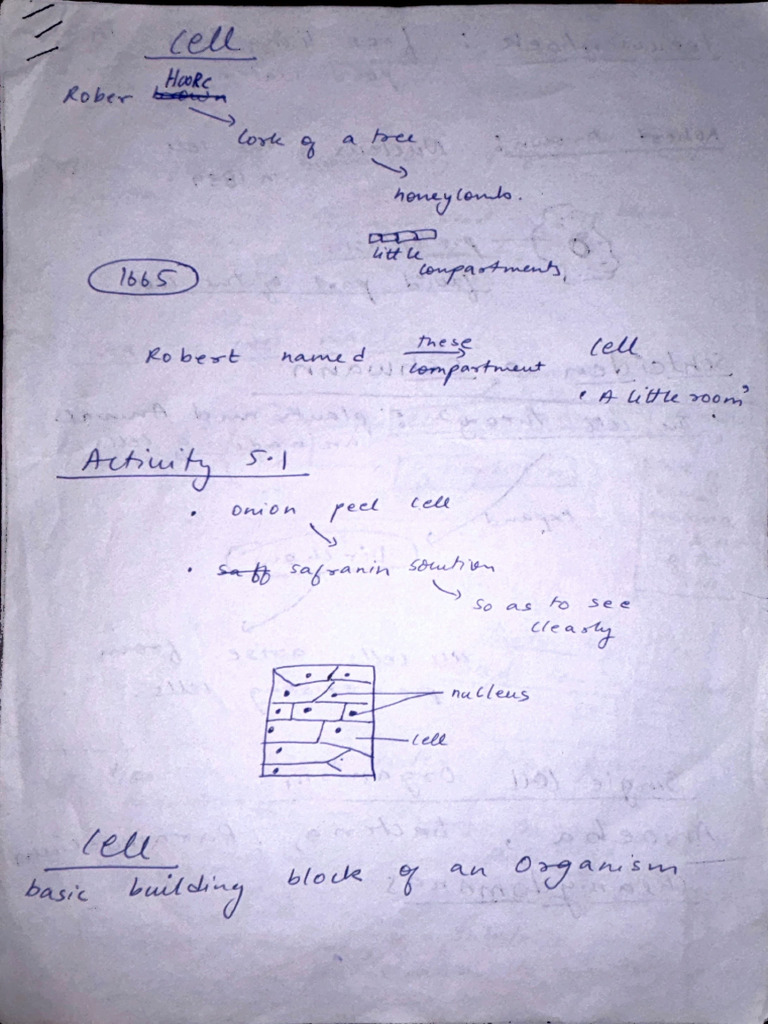 Cell
HOOKE
Rober brown
Cork of a tree
honeycombs.
little
compartments,
1665
these
Robert named compartment cell
'A little room'
Activity 5.1
• onion peel cell
• saff safranin solution
so as to see
clearly
nucleus
cell
Cell
basic building block of an Organism